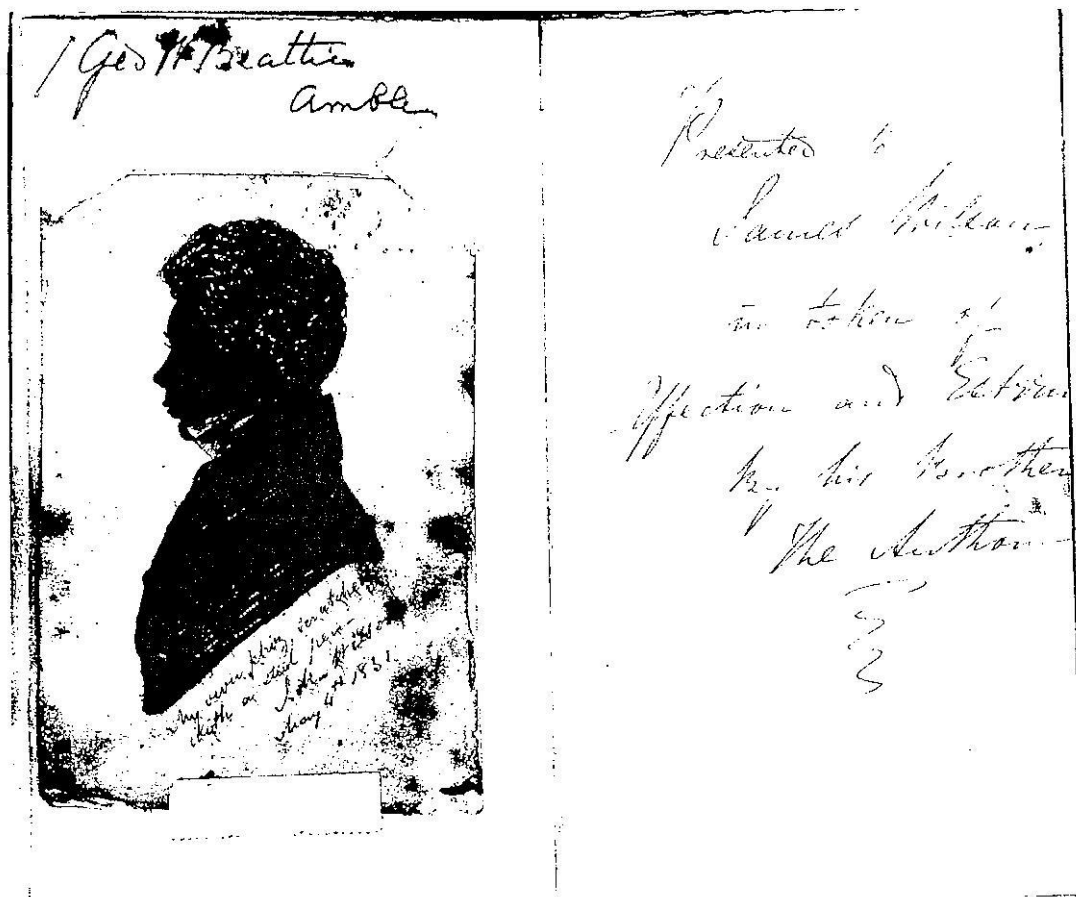 Geo H Beattie
Amble
My own phiz, scratched
with a steel pen
John Wilson
May 4th 1831
Presented to
James Wilson
in token of
Affection and Esteem
By his Brother
The Author